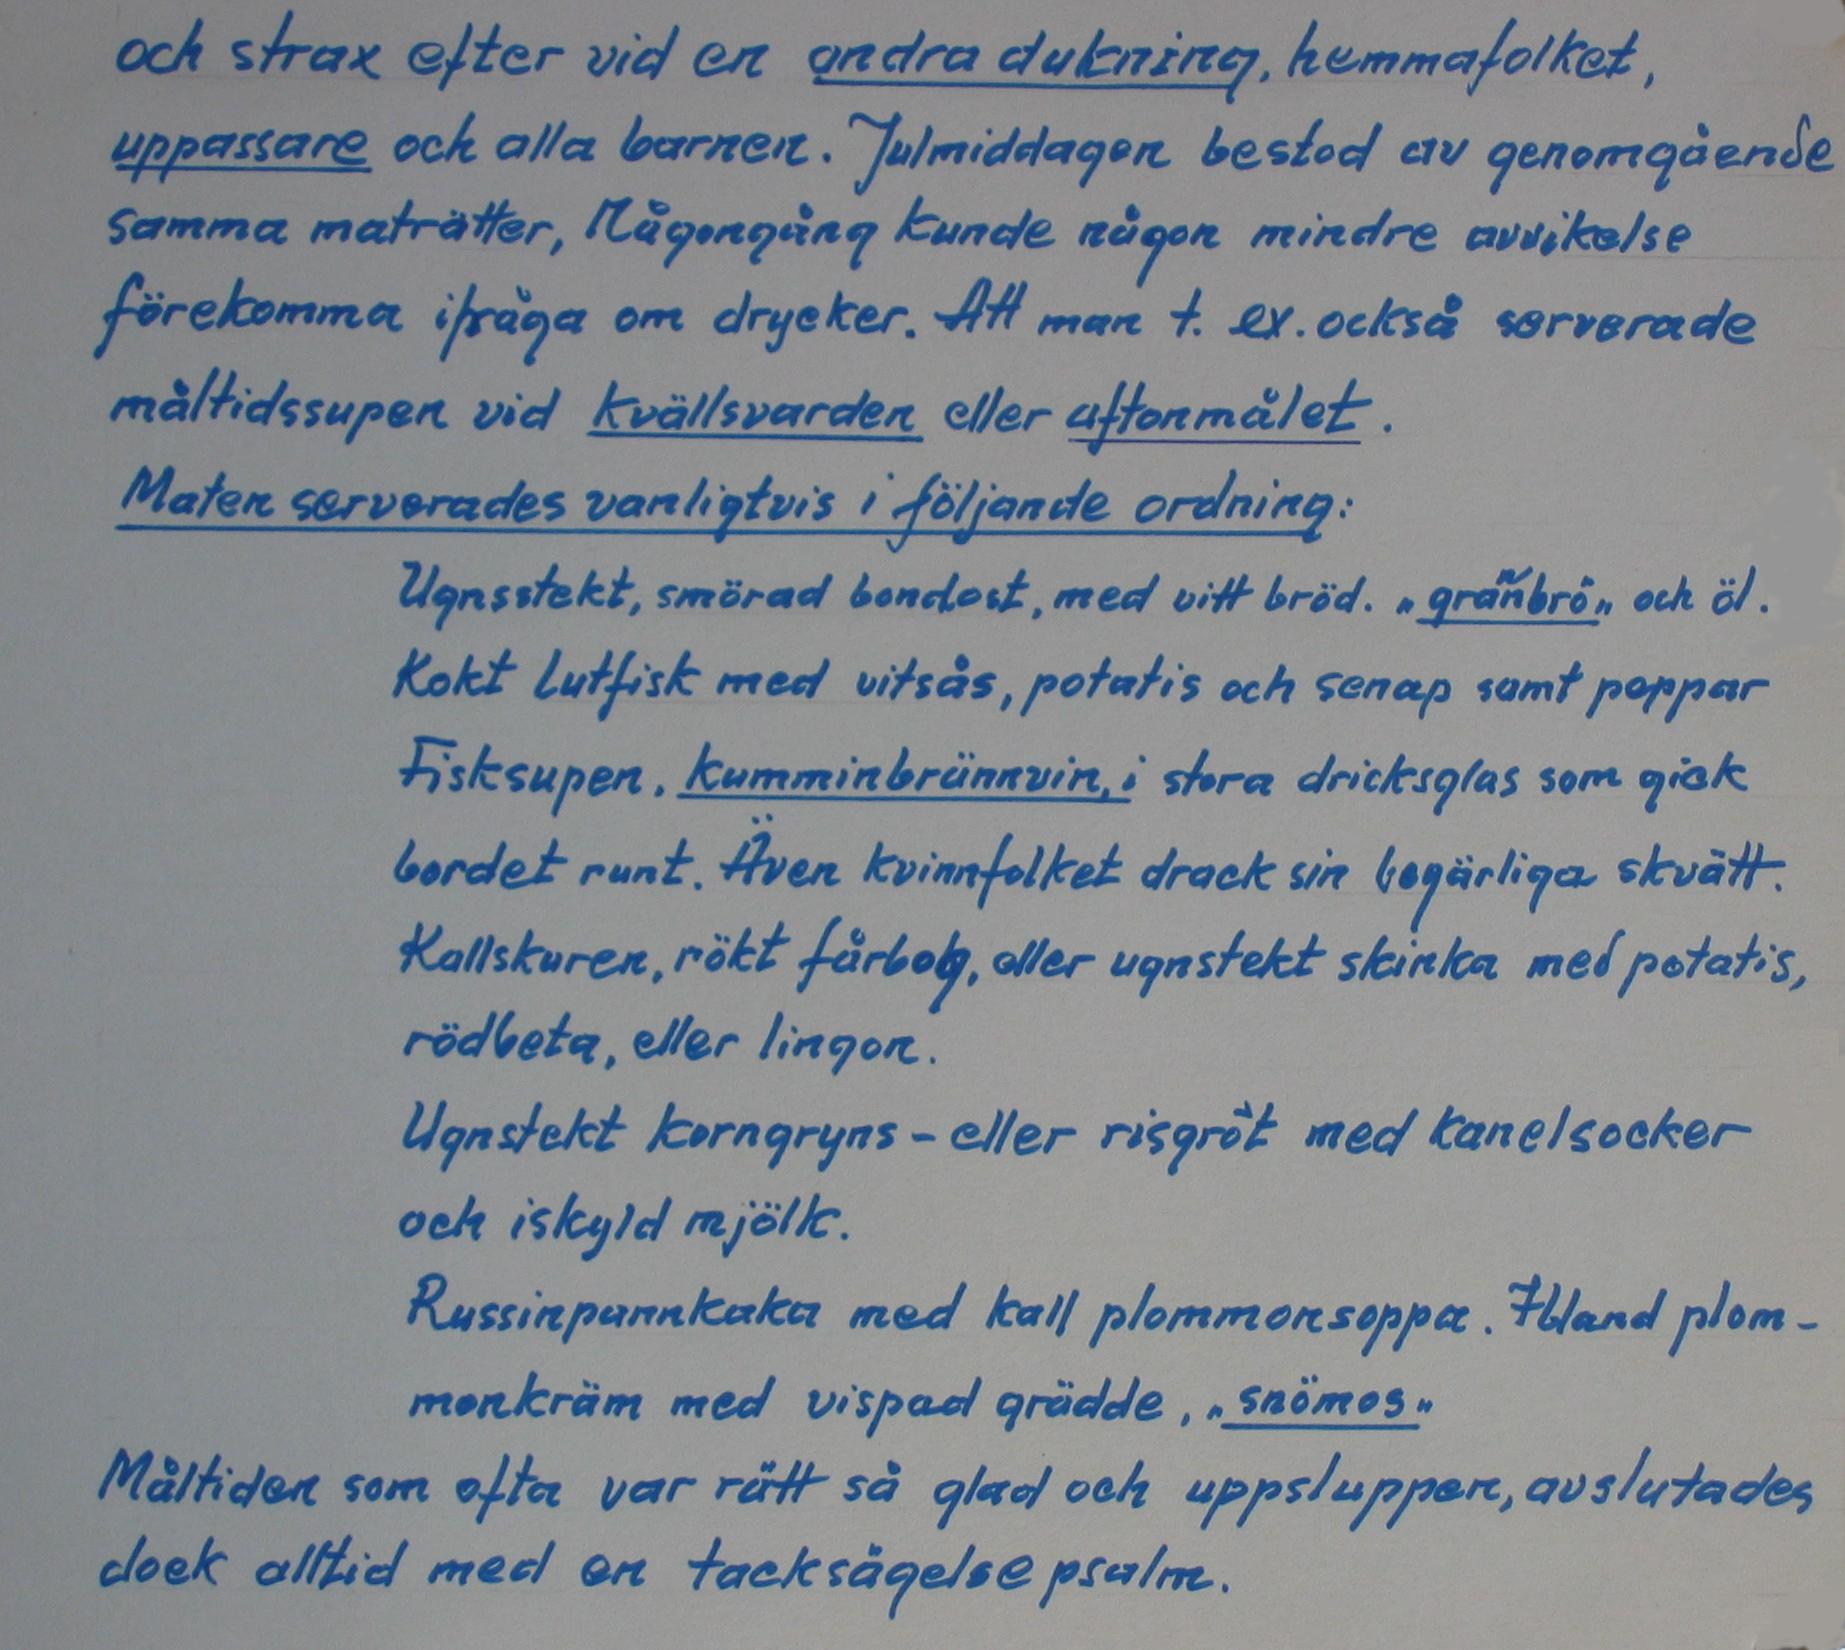 och strax efter vid en andra dukning, hemmafolket,
uppassare och alla barnen. Julmiddagen bestod av genomgående
samma maträtter, Någongång kunde någon mindre avvikelse
förekomma ifråga om drycker. Att man t. ex. också serverade
måltidssupen vid kvällsvarden eller aftonmålet.
Maten serverades vanligtvis i följande ordning:
Ugnsstekt, smörad bondost, med vitt bröd. "grännbrö" och öl.
Kokt lutfisk med vitsås, potatis och senap samt peppar
Fisksupen. kumminbrännvin, i stora dricksglas som gick
bordet runt. Även kvinnfolket drack sin begärliga skvätt.
Kallskuren, rökt fårbog, eller ugnstekt skinka med potatis,
rödbeta, eller lingon.
Ugnstekt korngryns - eller risgröt med kanelsocker
och iskyld mjölk.
Russinpannkaka med kall plommonsoppa. Ibland plom-
monkräm med vispad grädde, "snömos"
Måltiden som ofta var rätt så glad och uppsluppen, avslutades
dock alltid med en tacksägelse psalm.